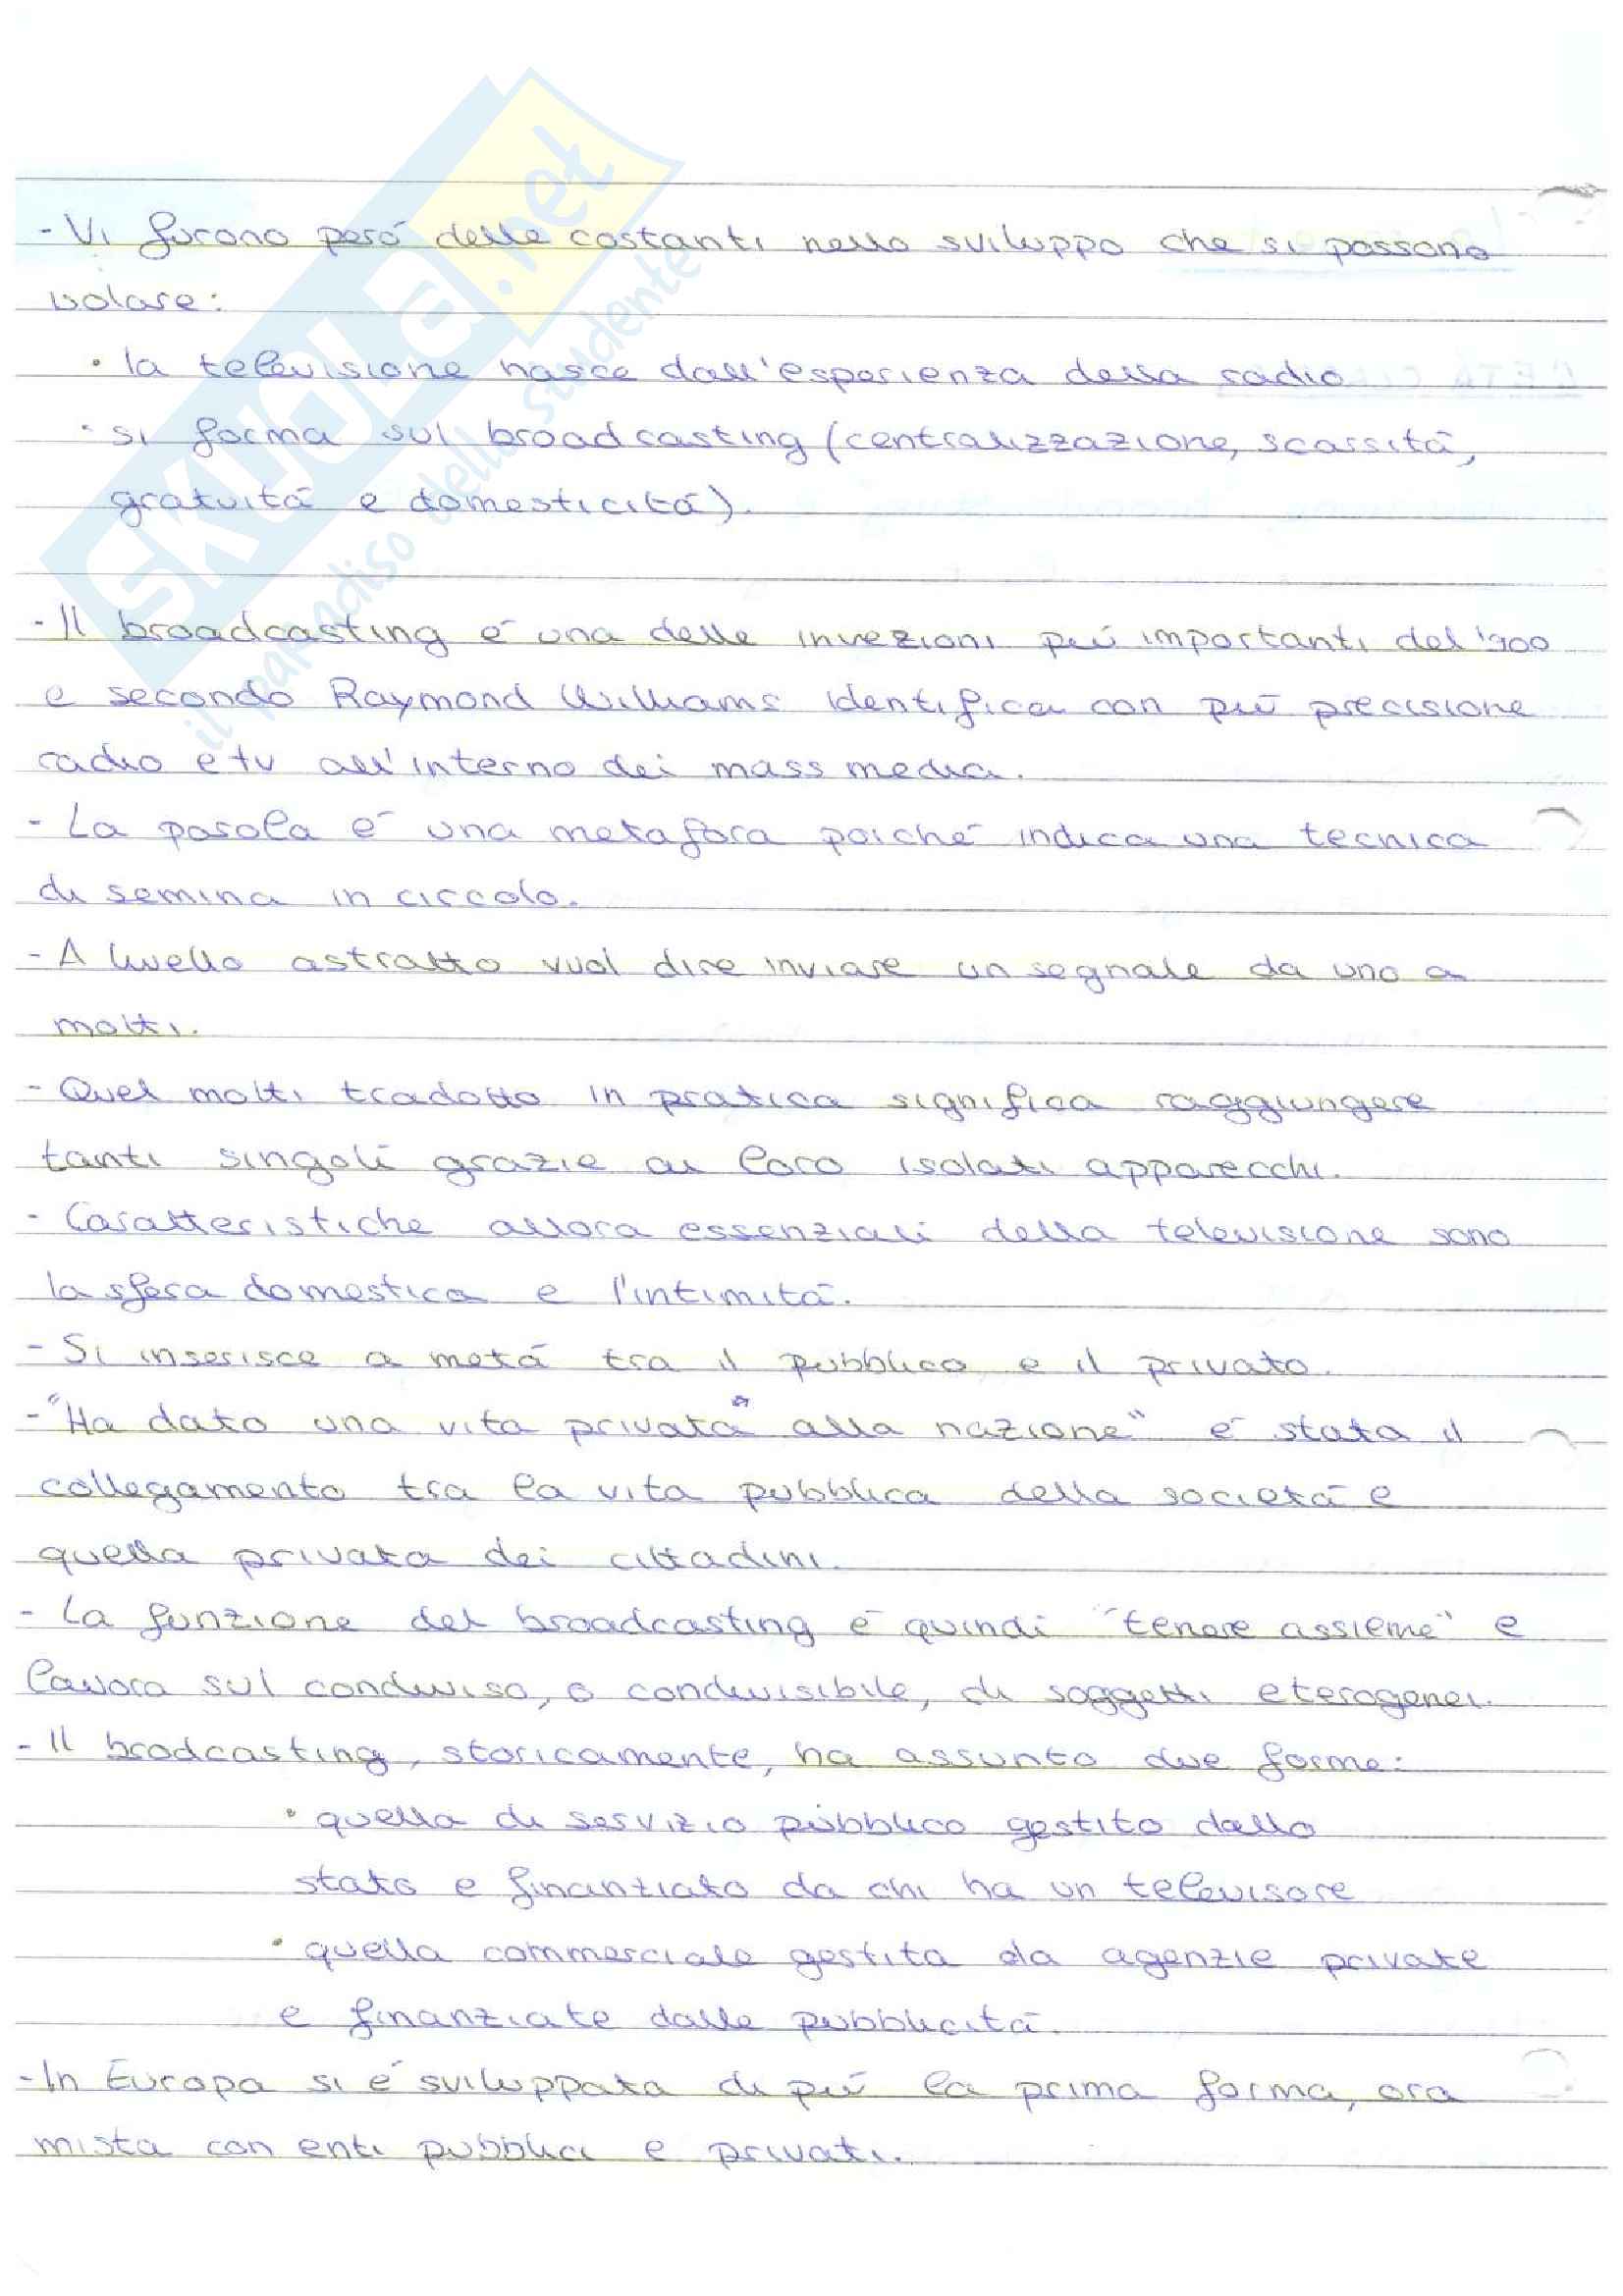 - Vi furono però delle costanti nello sviluppo che si possono
isolare:
· la televisione nasce dall'esperienza della radio
· si forma sul broadcasting (centralizzazione, scarsità,
gratuità e domesticità).
- Il broadcasting è una delle invezioni più importanti del '900
e secondo Raymond Williams identifica con più precisione
radio e tv all'interno dei mass media.
- La parola è una metafora poiché indica una tecnica
di semina in circolo.
- A livello astratto vuol dire inviare un segnale da uno a
molti.
- Quel molti tradotto in pratica significa raggiungere
tanti singoli grazie ai loro isolati apparecchi.
- Caratteristiche allora essenziali della televisione sono
la sfera domestica e l'intimità.
- Si inserisce a metà tra il pubblico e il privato.
- "Ha dato una vita privata alla nazione" è stata il
collegamento tra la vita pubblica della società e
quella privata dei cittadini.
- La funzione del broadcasting è quindi "tenere assieme" e
lavora sul condiviso, o condivisibile, di soggetti eterogenei.
- Il brodcasting, storicamente, ha assunto due forme:
· quella di servizio pubblico gestito dallo
stato e finanziato da chi ha un televisore
· quella commerciale gestita da agenzie private
e finanziate dalle pubblicità.
- In Europa si è sviluppata di più la prima forma, ora
mista con enti pubblici e privati.
SKUOLA.net
il paradiso dello studente